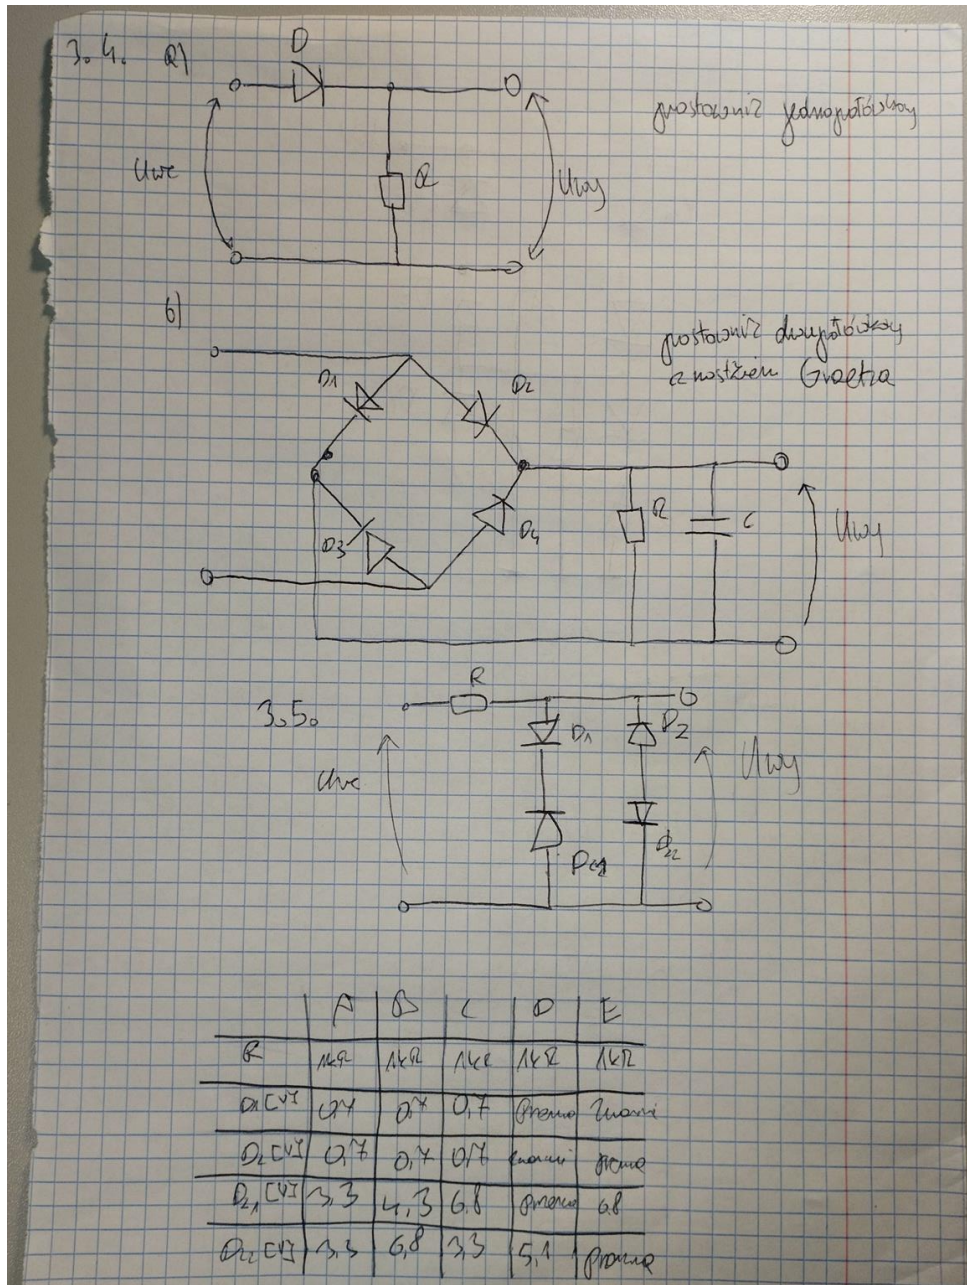 3.4. a)
D
prostownik jednopołówkowy
Uwe
R
Uwy
b)
prostownik dwupołówkowy
z mostkiem Graetza
D1
D2
D3
D4
R
C
Uwy
3.5.
R
D1
D2
Uwe
Uwy
Dz2
A B C D E
R 1kΩ 1kΩ 1kΩ 1kΩ 1kΩ
D1[V] 0,7 0,7 0,7 Przerwa
D2[V] 0,7 0,7 0,7 przerwa
Dz1[V] 3,3 4,3 6,8 przerwa 6.8
Dz2[V] 3,3 6,8 3,3 5,1 przerwa